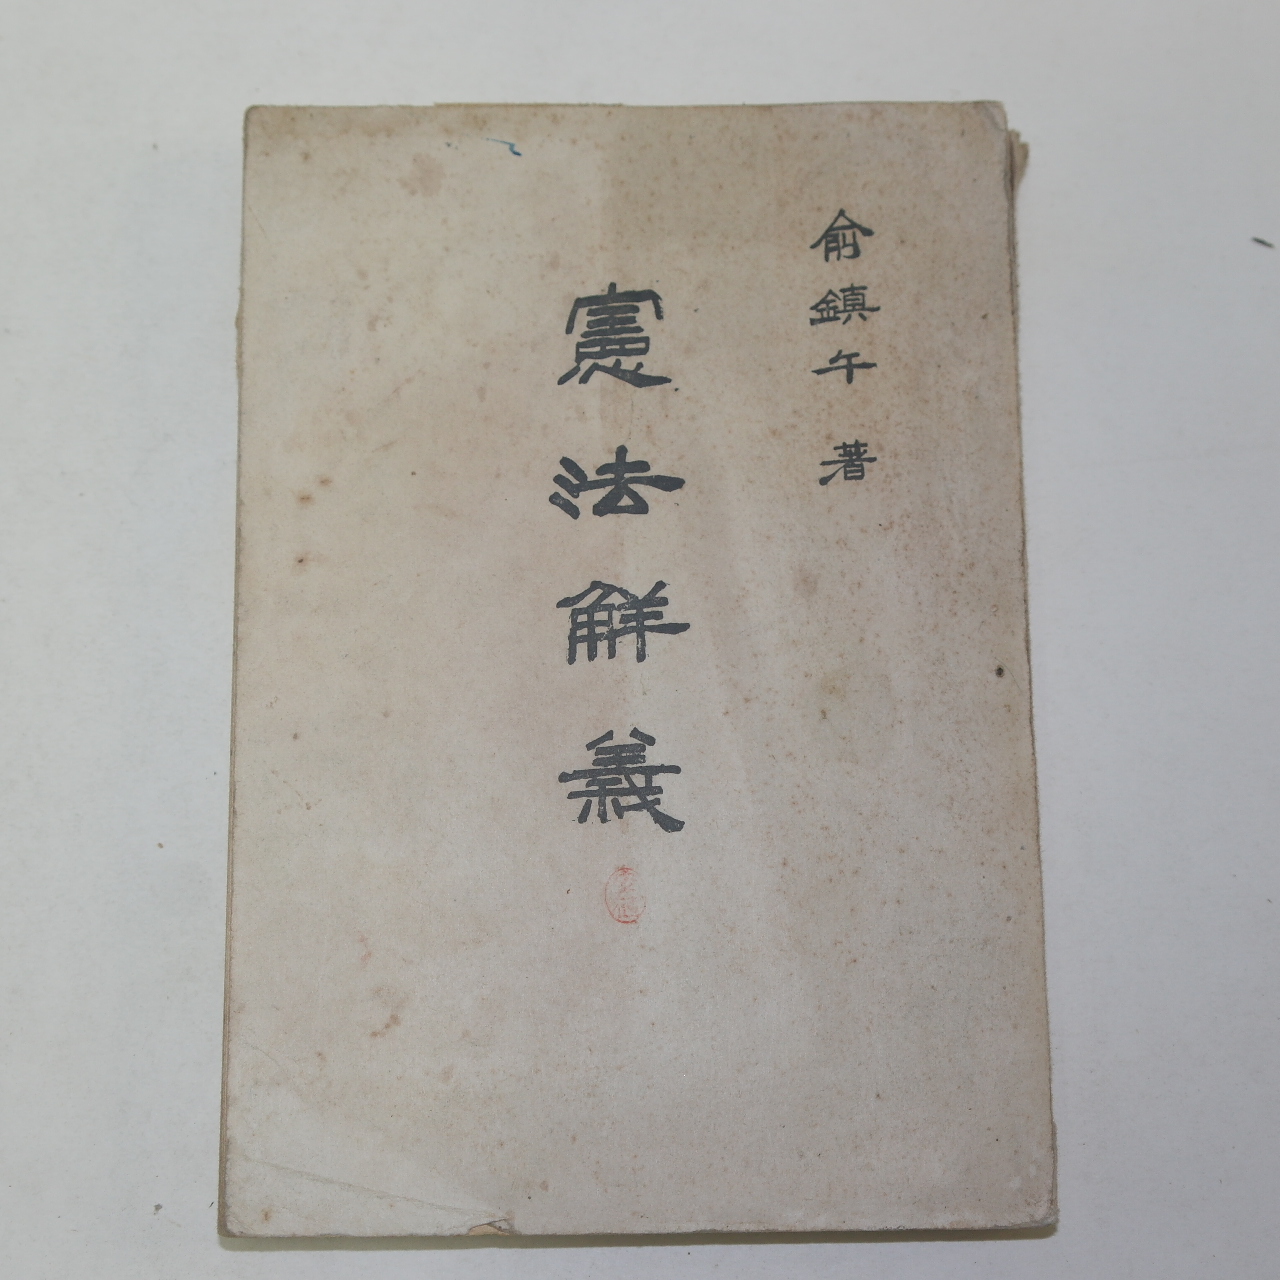 俞鎭午 著
憲法解義